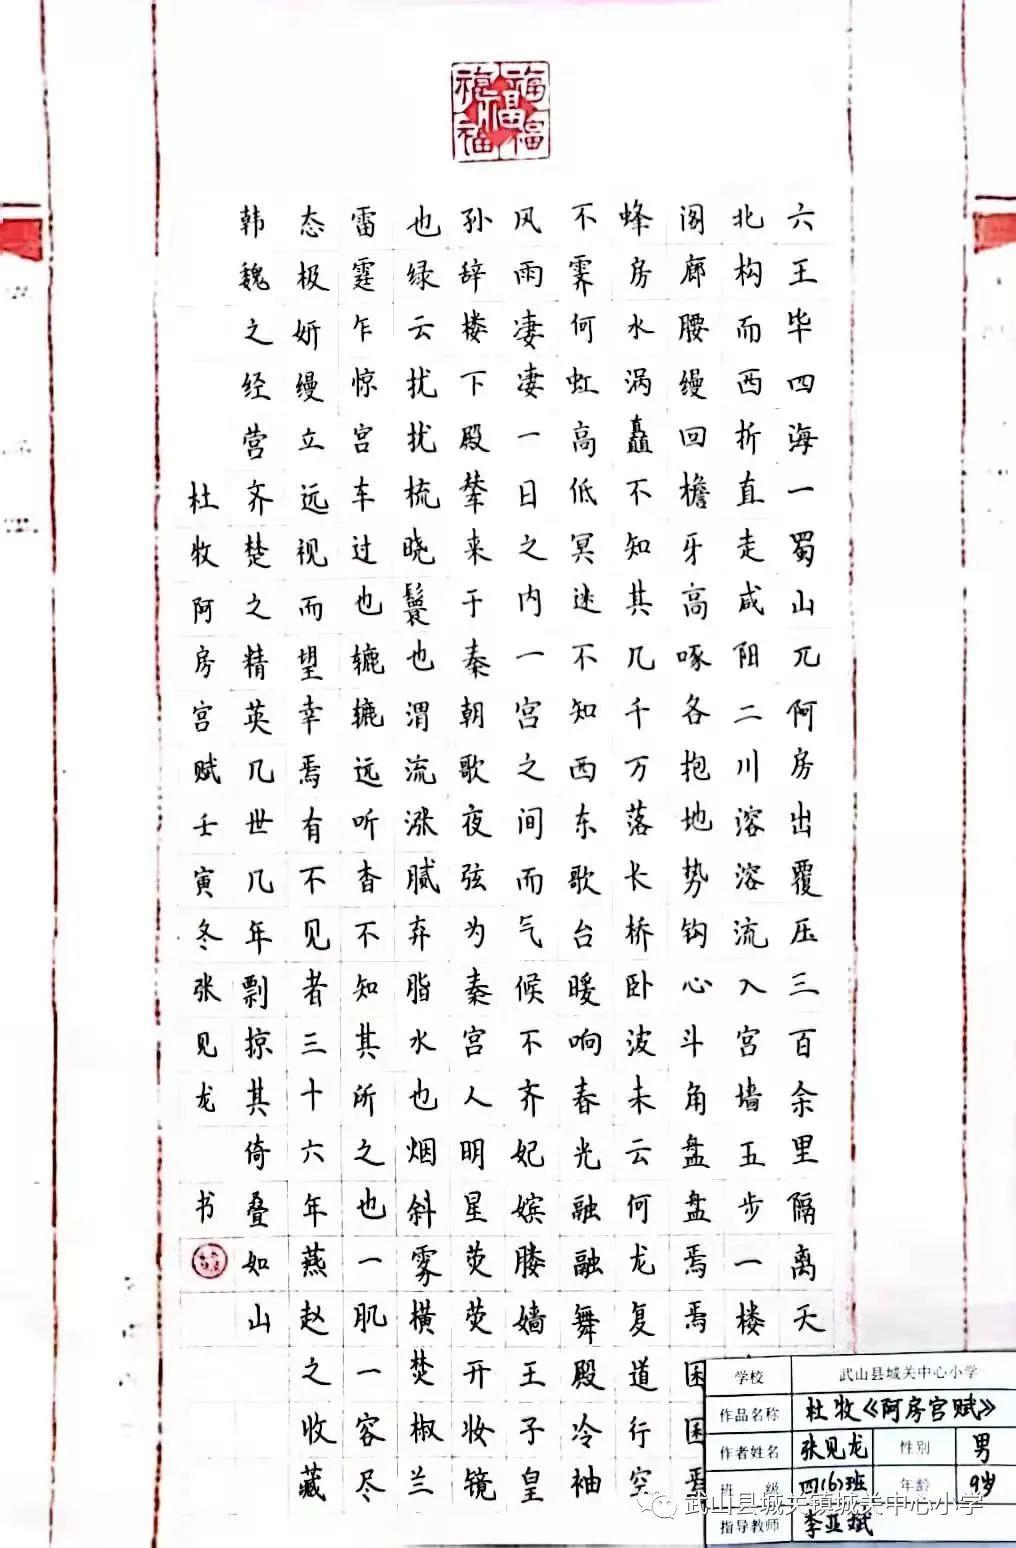 福福福福福
六王毕四海一蜀山兀阿房出覆压三百余里隔离天
北构而西折直走咸阳二川溶溶流入宫墙五步一楼
阁廊腰缦回檐牙高啄各抱地势钩心斗角盘盘焉焉困困焉
蜂房水涡矗不知其几千万落长桥卧波未云何龙复道行空
不霁何虹高低冥迷不知西东歌台暖响春光融融舞殿冷袖
风雨凄凄一日之内一宫之间而气候不齐妃嫔媵嫱王子皇
孙辞楼下殿辇来于秦朝歌夜弦为秦宫人明星荧荧开妆镜
也绿云扰扰梳晓鬟也渭流涨腻弃脂水也烟斜雾横焚椒兰
雷霆乍惊宫车过也辘辘远听杳不知其所之也一肌一容尽
态极妍缦立远视而望幸焉有不见者三十六年燕赵之收藏
韩魏之经营齐楚之精英几世几年剽掠其倚叠如山
杜牧阿房宫赋壬寅冬张见龙 书
学校 武山县城关中心小学
作品名称 杜牧《阿房宫赋》
作者姓名 张见龙 性别 男
班级 四(6)班 年龄 9岁
指导教师 李亚斌
武山县城关镇城关中心小学